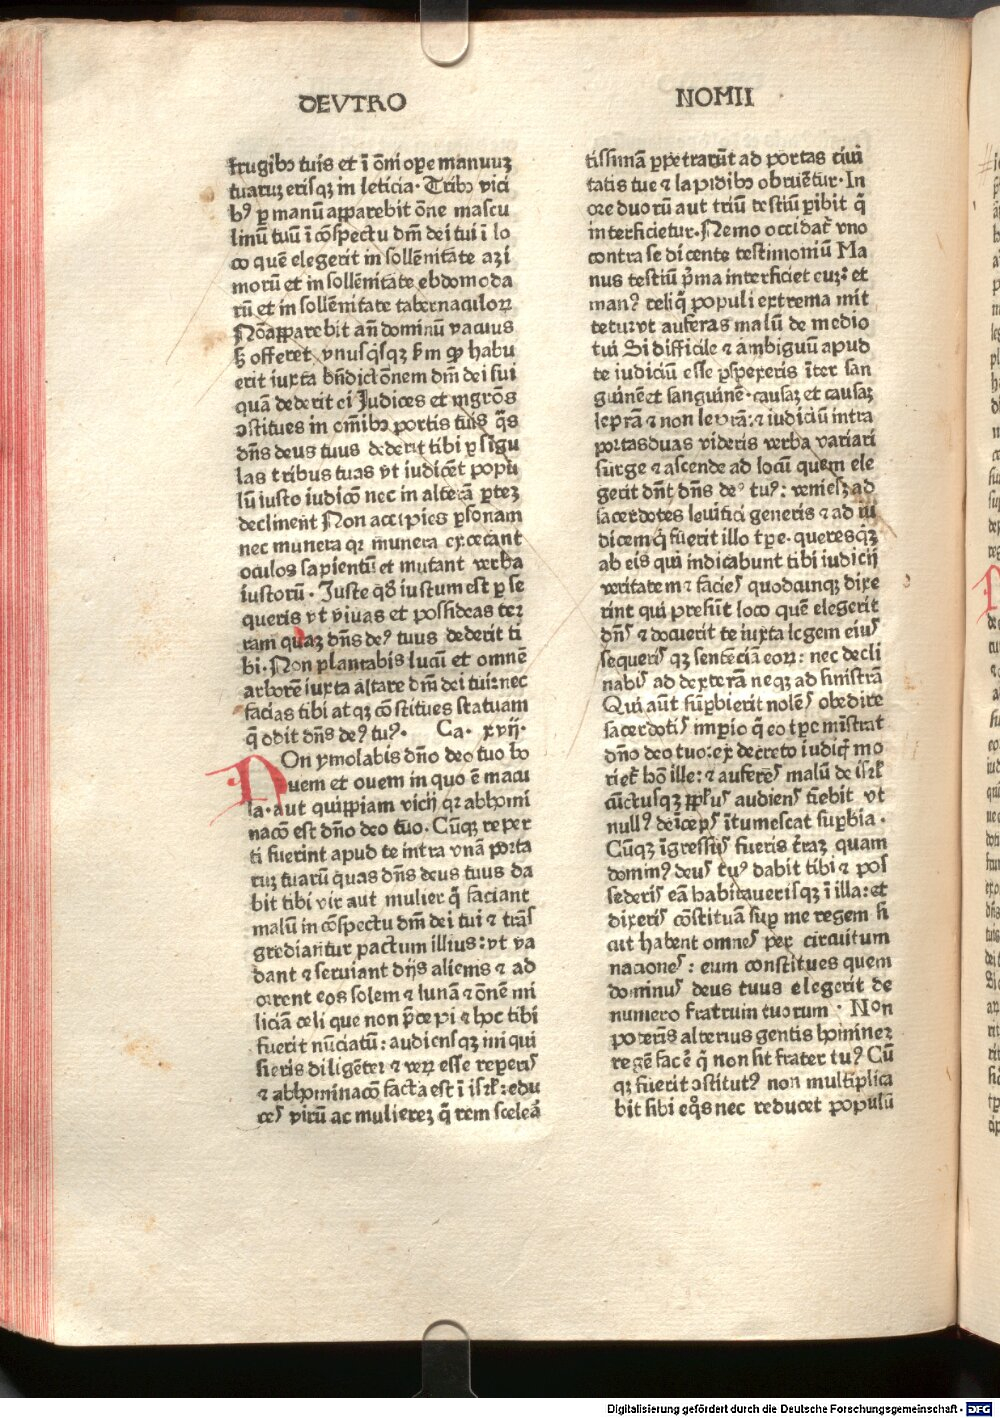 DEVTRO
NOMII
frugibꝫ tuis et ī ōni oꝑe manuuꝫ
tuaruꝫ erisqꝫ in leticia· Tribꝫ vici
bꝰ ꝑ manū apparebit ōne mascu
linū tuū ī cōspectu dm̄ dei tui ī lo
co quē elegerit in sollēnitate azi
morū et in sollēnitate ebdomoda
rū et in sollēnitate tabernaculoꝝ
Nō apparebit an̄ dominū vacuus
offeret vnusq̄sqꝫ habu
erit iuxta bn̄dictōnem dm̄ dei sui
quā dederit ei Judices et mgrōs
ꝯstitues in om̄ibꝫ portis tuis q̄s
dn̄s deus tuus dederit tibi ꝑ sīgu
las tribus tuas vt iudicēt popu
lū iusto iudicō nec in alterā ꝑteꝫ
declinent Non accipies ꝑsonam
nec munera qꝛ munera excecant
oculos sapientū et mutant verba
iustorū· Juste qđ iustum est ꝑse
queris vt viuas et possideas ter
ram quaꝫ dn̄s deꝰ tuus dederit ti
bi· Non plantabis lucū et omnē
arborē iuxta altare dm̄ dei tui: nec
facias tibi atqꝫ cōstitues statuam
q̄ odit dn̄s deꝰ tuꝰ· Ca· xvij·
NOn ymolabis dn̄o deo tuo bo
uem et ouem in quo ē macu
la· aut quippiam vicij qꝛ abhomi
nacō est dn̄o deo tuo· Cūqꝫ reper
ti fuerint apud te intra vnā porta
ruꝫ tuarū quas dn̄s deus tuus da
bit tibi vir aut mulier q̄ faciant
malū in cōspectu dm̄ dei tui ⁊ trāſ
grediantur pactum illius: vt va
dant ⁊ seruiant dijs alienis ⁊ ad
orent eos solem ⁊ lunā ⁊ ōnē mi
liciā celi que non p̄cepi ⁊ hoc tibi
fuerit nūciatū: audiensqꝫ inqui
sieris diligēter ⁊ veꝝ esse reperis
⁊ abhominacō facta est ī isrl̄: edu
ces virū ac muliereꝫ q̄ rem scelea
tissimā ꝑpetrarūt ad portas ciui
tatis tue ⁊ lapidibꝫ obruētur· In
ore duorū aut triū testiū ꝑibit q̄
interficietur· Nemo occidat̄ vno
contra se dicente testimoniū Ma
nus testiū p̄ma interficiet euꝫ: et
manꝰ reliq̄ populi extrema mit
tetur vt auferas malū de medio
tui Si difficile ⁊ ambiguū apud
te iudiciū esse ꝑspexeris īter san
guinē et sanguinē· causaꝫ et causaꝫ
leprā ⁊ non leprā: ⁊ iudiciū intra
portas duas videris verba variari
surge ⁊ ascende ad locū quem ele
gerit dn̄s deꝰ tuꝰ: veniesqꝫ ad
sacerdotes leuitici generis ⁊ ad iu
dicem q̄ fuerit illo tꝑe· queresqꝫ
ab eis qui indicabunt tibi iudicij
veritatem ⁊ facies quodcunqꝫ dixe
rint qui presūt loco quē elegerit
dn̄s ⁊ docuerit te iuxta legem eius
sequeris qꝫ sentēciā eoꝝ: nec decli
nabis ad dexterā neqꝫ ad sinistrā
Qui aūt suꝑbierit nolēs obedire
sacerdotis imꝑio q̄ eo tꝑe mīstrat
dn̄o deo tuo: ex decreto iudicꝭ mo
riet̄ hō ille: ⁊ auferes malū de isrl̄
cūctusqꝫ ppl̄us audiens timebit vt
nullꝰ deīceps ītumescat suꝑbia·
Cūqꝫ īgressus fueris terraꝫ quam
dominꝰ deus tuꝰ dabit tibi ⁊ pos
sederis eā habitauerisqꝫ ī illa: et
dixeris cōstituā suꝑ me regem si
cut habent omnes per circuitum
naciones: eum constitues quem
dominus deus tuus elegerit de
numero fratrum tuorum· Non
poteris alterius gentis homineꝫ
regē facē q̄ non sit frater tuꝰ Cū
qꝫ fuerit ꝯstitutꝰ non multiplica
bit sibi eq̄s nec reducet populū
Digitalisierung gefördert durch die Deutsche Forschungsgemeinschaft - DFG